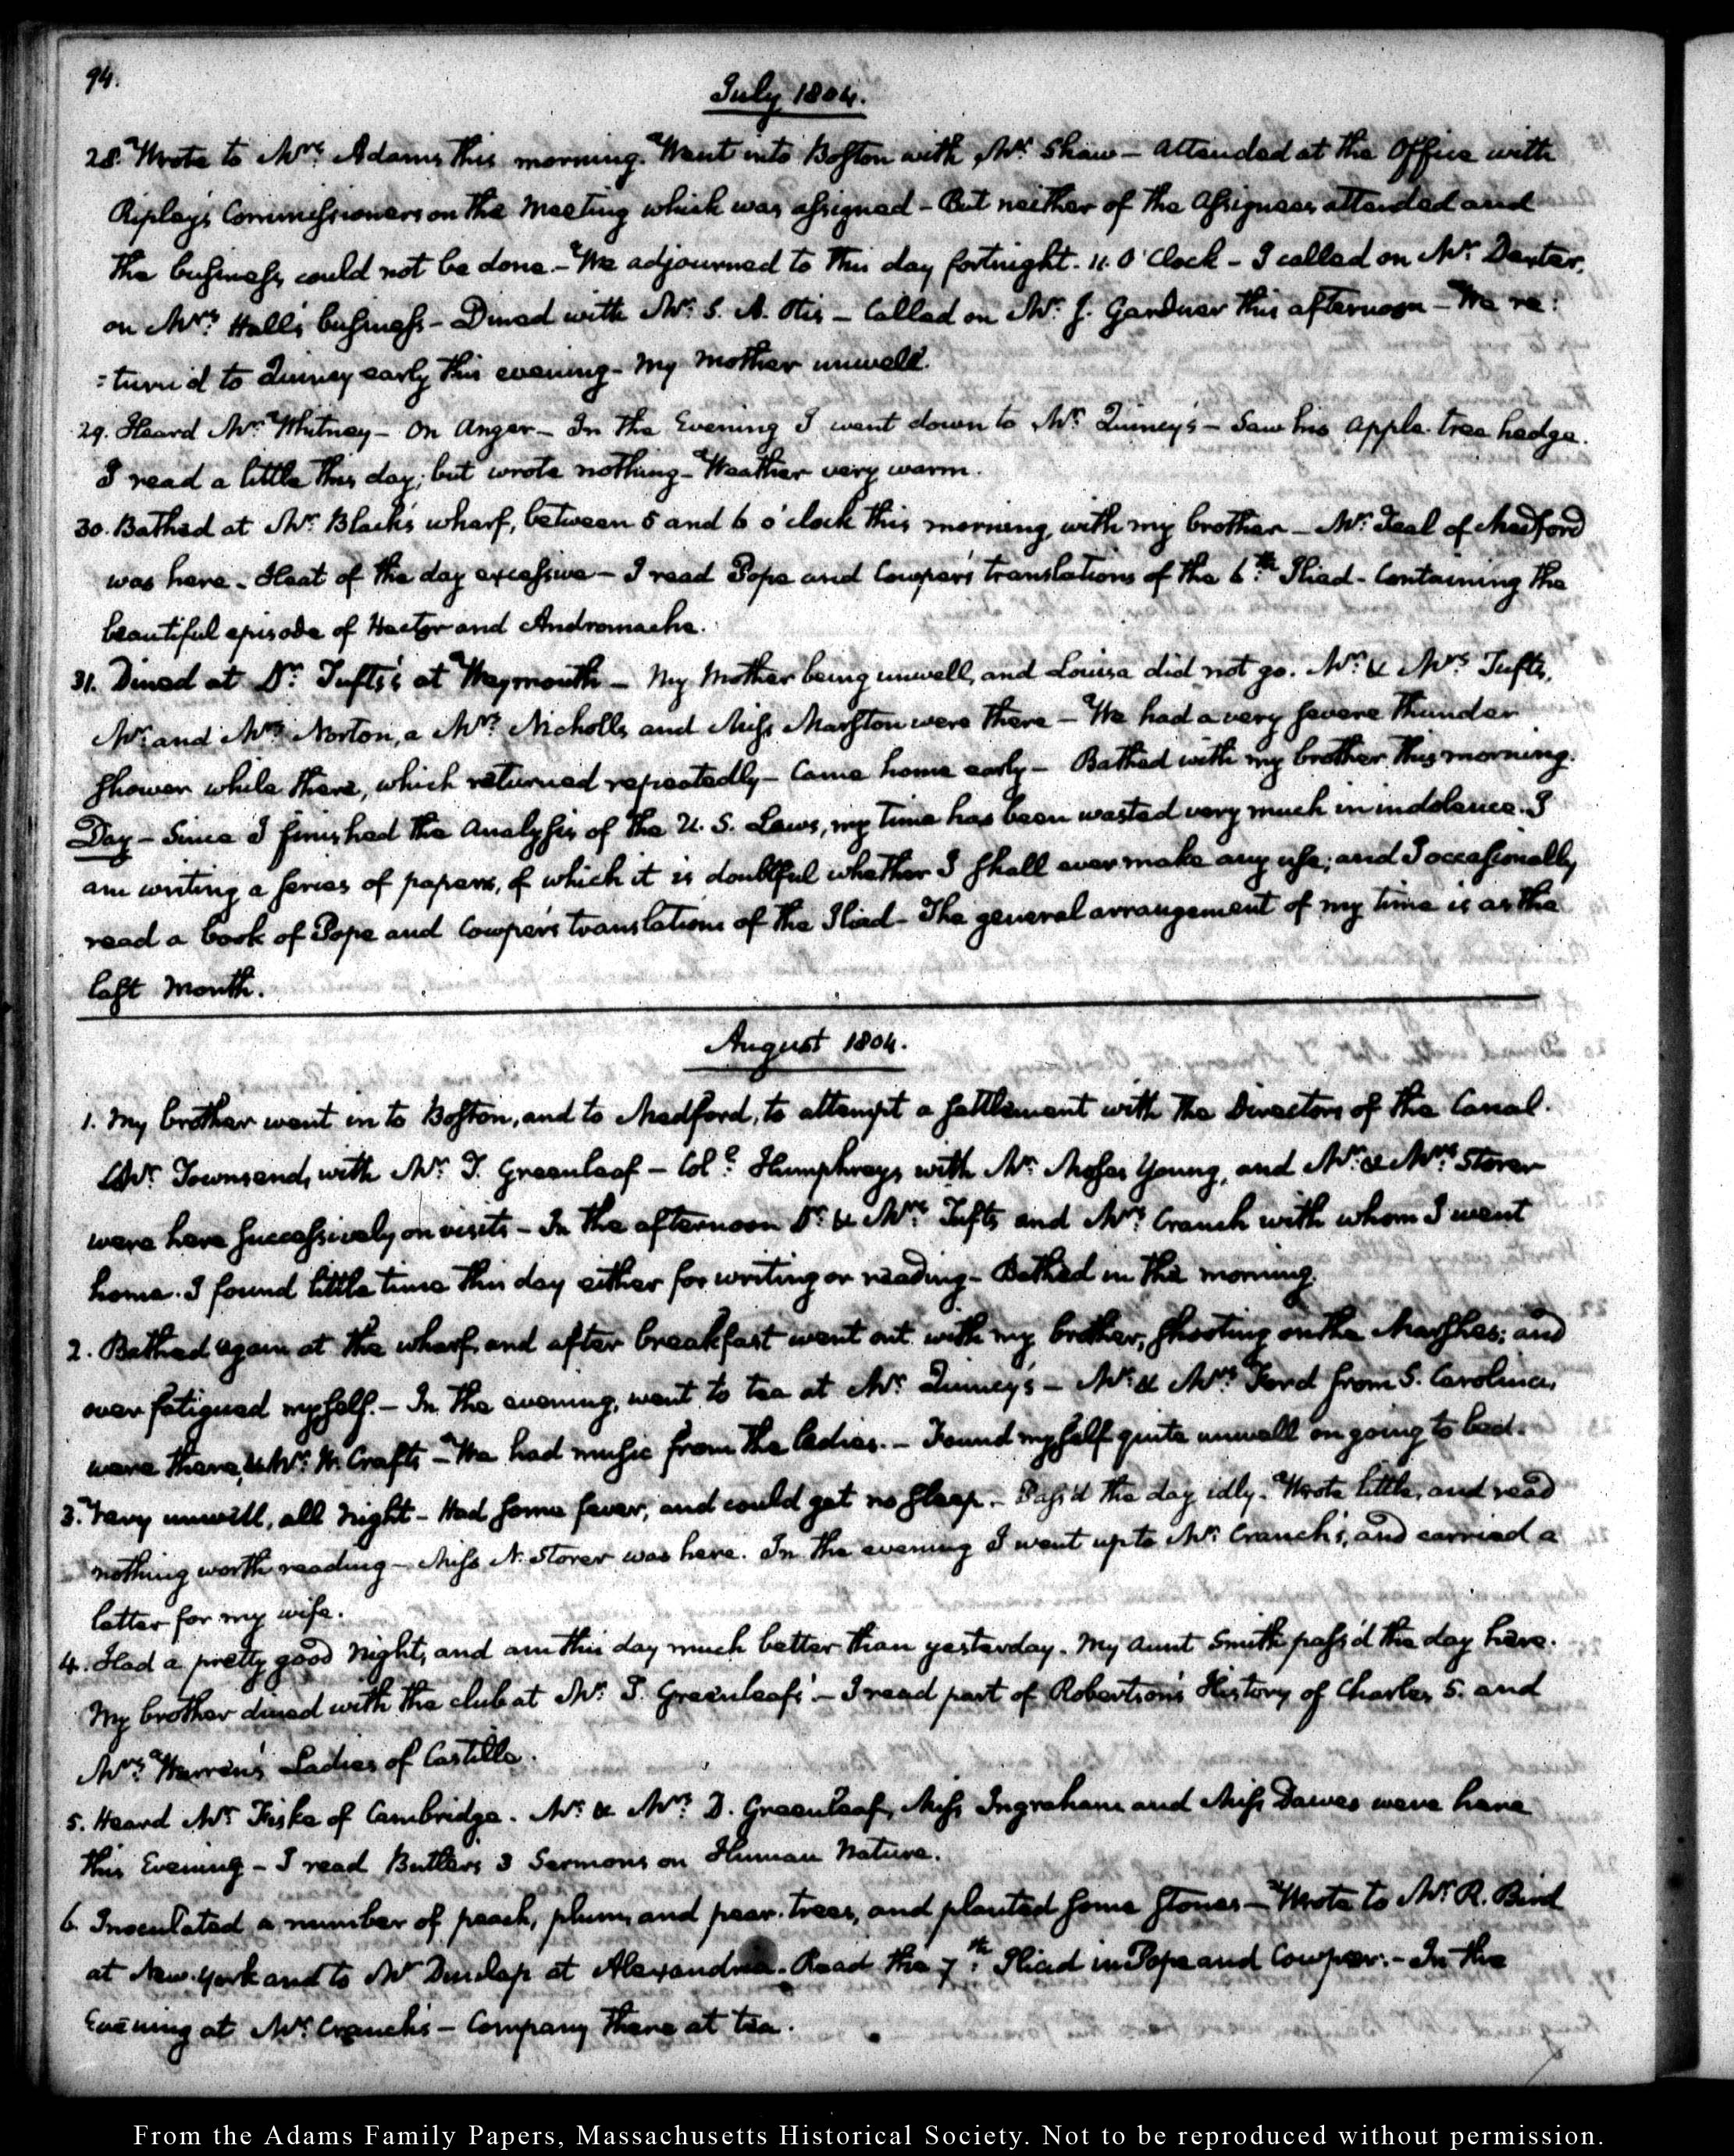 94.
July 1804.
28. Wrote to Mrs. Adams this morning. Went into Boston with Mr. Shaw — Attended at the Office with
Ripley's Commissioners on the Meeting which was assigned — But neither of the Assignees attended and
the business could not be done. — We adjourned to this day fortnight. 11. O'Clock — I called on Mr. Dexter,
on Mrs. Hall's business — Dined with Mr. S. A. Otis — Called on Mr. J. Gardner this afternoon — We re:
:turn'd to Quincy early this evening — My Mother unwell.
29. Heard Mr. Whitney — On Anger — In the Evening I went down to Mr. Quincy's — Saw his apple-tree hedge.
I read a little this day; but wrote nothing — Weather very warm.
30. Bathed at Mr. Black's wharf, between 5 and 6 o'clock this morning, with my brother — Mr. Teal of Medford
was here — Heat of the day excessive — I read Pope and Cowper's translations of the 6th. Iliad — Containing the
beautiful episode of Hector and Andromache.
31. Dined at Dr. Tufts's at Weymouth — My Mother being unwell, and Louisa did not go. Mr. & Mrs. Tufts,
Mr. and Mrs. Norton, a Mrs. Nicholls and Miss Marston were there — We had a very severe thunder
shower while there, which returned repeatedly — Came home early — Bathed with my brother this morning.
Day — Since I finished the Analysis of the U. S. Laws, my time has been wasted very much in indolence. I
am writing a series of papers, of which it is doubtful whether I shall ever make any use; and I occasionally
read a book of Pope and Cowper's translations of the Iliad — The general arrangement of my time is as the
last Month.
August 1804.
1. My brother went in to Boston, and to Medford, to attempt a settlement with the Directors of the Canal.
Mr. Townsend, with Mr. T. Greenleaf — Coll. Humphreys with Mr. Moses Young, and Mr. & Mrs. Storer
were here successively on visits — In the afternoon Dr. & Mrs. Tufts and Mrs. Cranch with whom I went
home. I found little time this day either for writing or reading — Bathed in the morning.
2. Bathed again at the wharf, and after breakfast went out with my brother, shooting on the Marshes; and
over fatigued myself. — In the evening, went to tea at Mr. Quincy's — Mr. & Mrs. Ford from S. Carolina,
were there, & Mr. W. Crafts — We had music from the ladies. — Found myself quite unwell on going to bed.
3. Very unwell, all Night — Had some fever, and could get no sleep. — Pass'd the day idly. Wrote little, and read
nothing worth reading — Miss N. Storer was here. In the evening I went up to Mr. Cranch's, and carried a
letter for my wife.
4. Had a pretty good Night, and am this day much better than yesterday. My Aunt Smith pass'd the day here.
My brother dined with the club at Mr. T. Greenleaf's — I read part of Robertson's History of Charles 5. and
Mrs. Warren's Ladies of Castille.
5. Heard Mr. Fiske of Cambridge. Mr. & Mrs. D. Greenleaf, Miss Ingraham and Miss Dawes were here
this Evening — I read Butler's 3 Sermons on Human Nature.
6. Inoculated a number of peach, plum, and pear-trees, and planted some stones — Wrote to Mr. R. Bird
at New-York and to Mr. Dunlap at Alexandria. Read the 7th. Iliad in Pope and Cowper. — In the
Evening at Mr. Cranch's — Company there at tea.
From the Adams Family Papers, Massachusetts Historical Society. Not to be reproduced without permission.